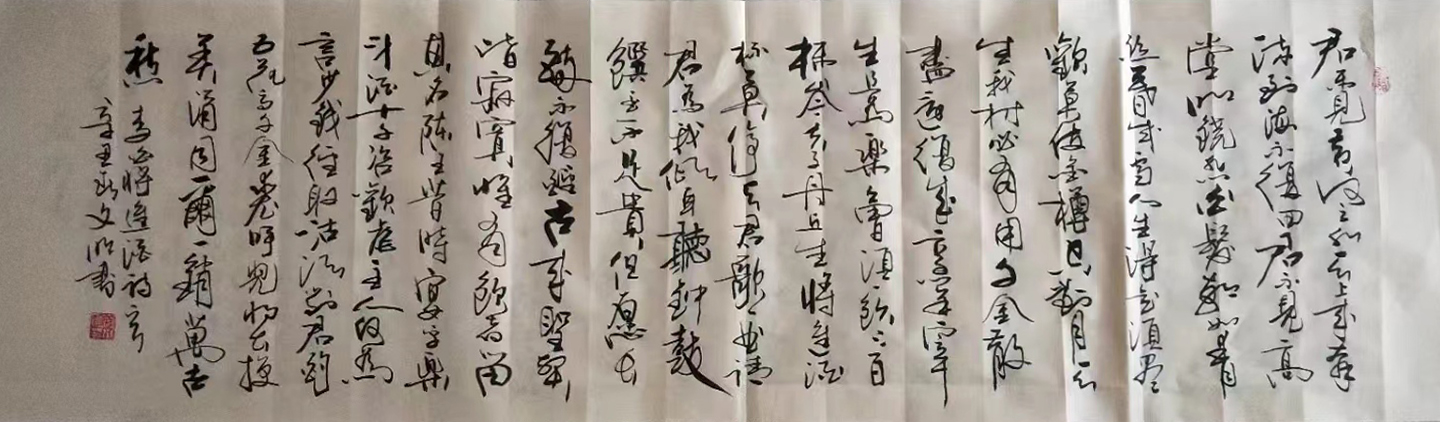 君不見黄河之水天上来奔
流到海不復回君不見高
堂明鏡悲白髮朝如青
丝暮成雪人生得意須尽
歡莫使金樽空對月天
生我材必有用千金散
盡還復来烹羊宰
牛且為樂會須飲三百
杯岑夫子丹丘生將進酒
杯莫停与君歌一曲請
君為我傾耳聽鐘鼓
饌玉不足貴但愿长
醉不復醒古来聖賢
皆寂寞惟有飲者留
其名陳王昔時宴平樂
斗酒十千恣歡虐主人何為
言少錢径取沽酒對君酌
五花馬千金裘呼兒将出换
美酒同爾一銷萬古
愁 李白將進酒詩
辛丑 文 書